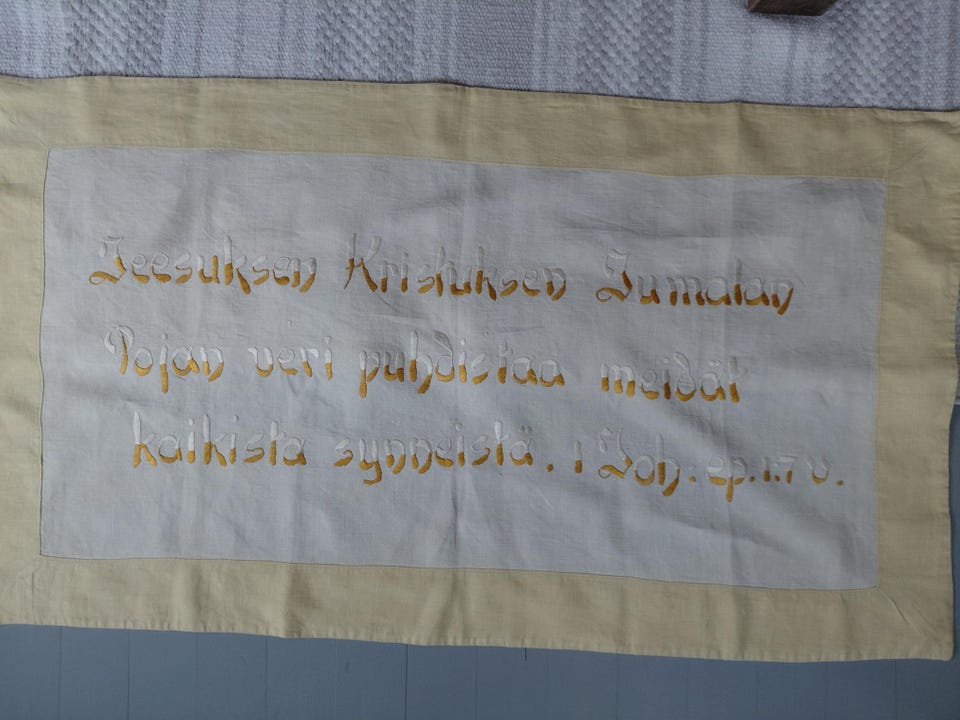 Jeesuksen Kristuksen Jumalan
Pojan veri puhdistaa meidät
kaikista synneistä. 1 Joh: ep.1.7 v.